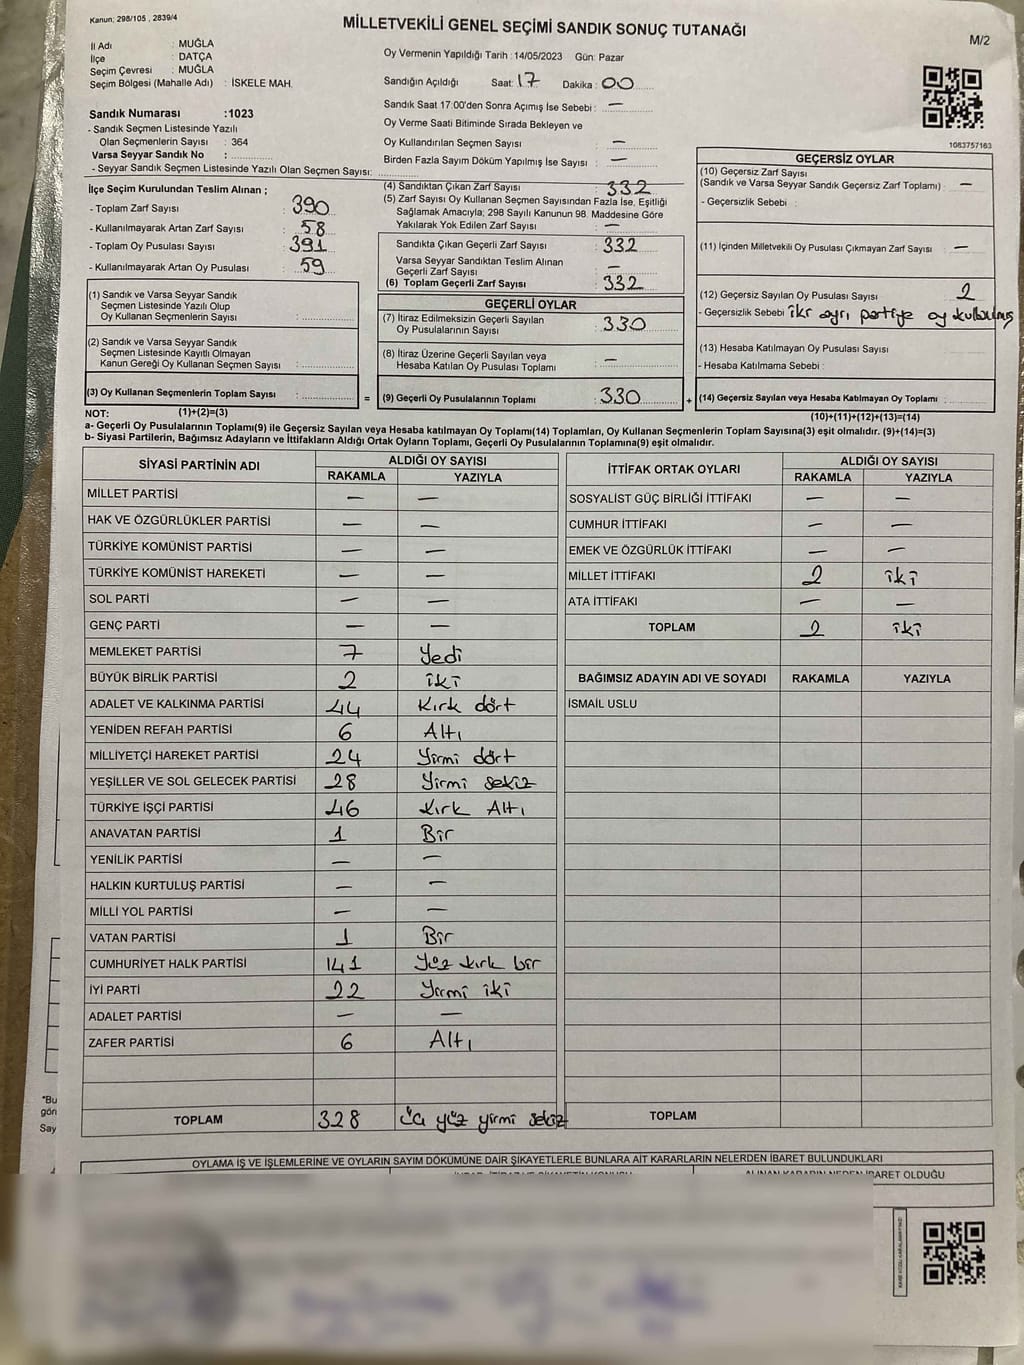 Kanun: 298/105 , 2839/4
MİLLETVEKİLİ GENEL SEÇİMİ SANDIK SONUÇ TUTANAĞI
M/2
İl Adı : MUĞLA
İlçe : DATÇA
Seçim Çevresi : MUĞLA
Seçim Bölgesi (Mahalle Adı) : İSKELE MAH.
Oy Vermenin Yapıldığı Tarih : 14/05/2023 Gün: Pazar
Sandığın Açıldığı Saat: 17 Dakika : 00
Sandık Saat 17:00'den Sonra Açımış İse Sebebi : —
Oy Verme Saati Bitiminde Sırada Bekleyen ve
Oy Kullandırılan Seçmen Sayısı : —
Birden Fazla Sayım Döküm Yapılmış İse Sayısı : —
1083757163
Sandık Numarası :1023
- Sandık Seçmen Listesinde Yazılı
Olan Seçmenlerin Sayısı : 364
Varsa Seyyar Sandık No :
- Seyyar Sandık Seçmen Listesinde Yazılı Olan Seçmen Sayısı:
İlçe Seçim Kurulundan Teslim Alınan ;
- Toplam Zarf Sayısı : 390
- Kullanılmayarak Artan Zarf Sayısı : 58
- Toplam Oy Pusulası Sayısı : 391
- Kullanılmayarak Artan Oy Pusulası : 59
(1) Sandık ve Varsa Seyyar Sandık
Seçmen Listesinde Yazılı Olup
Oy Kullanan Seçmenlerin Sayısı :
(2) Sandık ve Varsa Seyyar Sandık
Seçmen Listesinde Kayıtlı Olmayan
Kanun Gereği Oy Kullanan Seçmen Sayısı :
(3) Oy Kullanan Seçmenlerin Toplam Sayısı :
(1)+(2)=(3)
(4) Sandıktan Çıkan Zarf Sayısı : 332
(5) Zarf Sayısı Oy Kullanan Seçmen Sayısından Fazla İse, Eşitliği
Sağlamak Amacıyla; 298 Sayılı Kanunun 98. Maddesine Göre
Yakılarak Yok Edilen Zarf Sayısı : —
Sandıkta Çıkan Geçerli Zarf Sayısı : 332
Varsa Seyyar Sandıktan Teslim Alınan
Geçerli Zarf Sayısı : —
(6) Toplam Geçerli Zarf Sayısı : 332
GEÇERLİ OYLAR
(7) İtiraz Edilmeksizin Geçerli Sayılan
Oy Pusulalarının Sayısı : 330
(8) İtiraz Üzerine Geçerli Sayılan veya
Hesaba Katılan Oy Pusulası Toplamı : —
= (9) Geçerli Oy Pusulalarının Toplamı : 330 +
GEÇERSİZ OYLAR
(10) Geçersiz Zarf Sayısı
(Sandık ve Varsa Seyyar Sandık Geçersiz Zarf Toplamı) : —
- Geçersizlik Sebebi :
(11) İçinden Milletvekili Oy Pusulası Çıkmayan Zarf Sayısı : —
(12) Geçersiz Sayılan Oy Pusulası Sayısı : 2
- Geçersizlik Sebebi : iki ayrı partiye oy kullanılmış
(13) Hesaba Katılmayan Oy Pusulası Sayısı :
- Hesaba Katılmama Sebebi :
(14) Geçersiz Sayılan veya Hesaba Katılmayan Oy Toplamı :
(10)+(11)+(12)+(13)=(14)
NOT:
a- Geçerli Oy Pusulalarının Toplamı(9) ile Geçersiz Sayılan veya Hesaba Katılmayan Oy Toplamı(14) Toplamları, Oy Kullanan Seçmenlerin Toplam Sayısına(3) eşit olmalıdır. (9)+(14)=(3)
b- Siyasi Partilerin, Bağımsız Adayların ve İttifakların Aldığı Ortak Oyların Toplamı, Geçerli Oy Pusulalarının Toplamına(9) eşit olmalıdır.
SİYASİ PARTİNİN ADI ALDIĞI OY SAYISI
RAKAMLA YAZIYLA
MİLLET PARTİSİ — —
HAK VE ÖZGÜRLÜKLER PARTİSİ — —
TÜRKİYE KOMÜNİST PARTİSİ — —
TÜRKİYE KOMÜNİST HAREKETİ — —
SOL PARTİ — —
GENÇ PARTİ — —
MEMLEKET PARTİSİ 7 Yedi
BÜYÜK BİRLİK PARTİSİ 2 iki
ADALET VE KALKINMA PARTİSİ 44 Kırk dört
YENİDEN REFAH PARTİSİ 6 Altı
MİLLİYETÇİ HAREKET PARTİSİ 24 Yirmi dört
YEŞİLLER VE SOL GELECEK PARTİSİ 28 Yirmi sekiz
TÜRKİYE İŞÇİ PARTİSİ 46 Kırk Altı
ANAVATAN PARTİSİ 1 Bir
YENİLİK PARTİSİ — —
HALKIN KURTULUŞ PARTİSİ — —
MİLLİ YOL PARTİSİ — —
VATAN PARTİSİ 1 Bir
CUMHURİYET HALK PARTİSİ 141 Yüz kırk bir
İYİ PARTİ 22 Yirmi iki
ADALET PARTİSİ — —
ZAFER PARTİSİ 6 Altı
TOPLAM 328 Üç yüz yirmi sekiz
İTTİFAK ORTAK OYLARI ALDIĞI OY SAYISI
RAKAMLA YAZIYLA
SOSYALİST GÜÇ BİRLİĞİ İTTİFAKI — —
CUMHUR İTTİFAKI — —
EMEK VE ÖZGÜRLÜK İTTİFAKI — —
MİLLET İTTİFAKI 2 iki
ATA İTTİFAKI — —
TOPLAM 2 iki
BAĞIMSIZ ADAYIN ADI VE SOYADI RAKAMLA YAZIYLA
İSMAİL USLU
TOPLAM
*Bu
gön
Say
OYLAMA İŞ VE İŞLEMLERİNE VE OYLARIN SAYIM DÖKÜMÜNE DAİR ŞİKAYETLERLE BUNLARA AİT KARARLARIN NELERDEN İBARET BULUNDUKLARI
ALINAN KARARIN NEDEN İBARET OLDUĞU